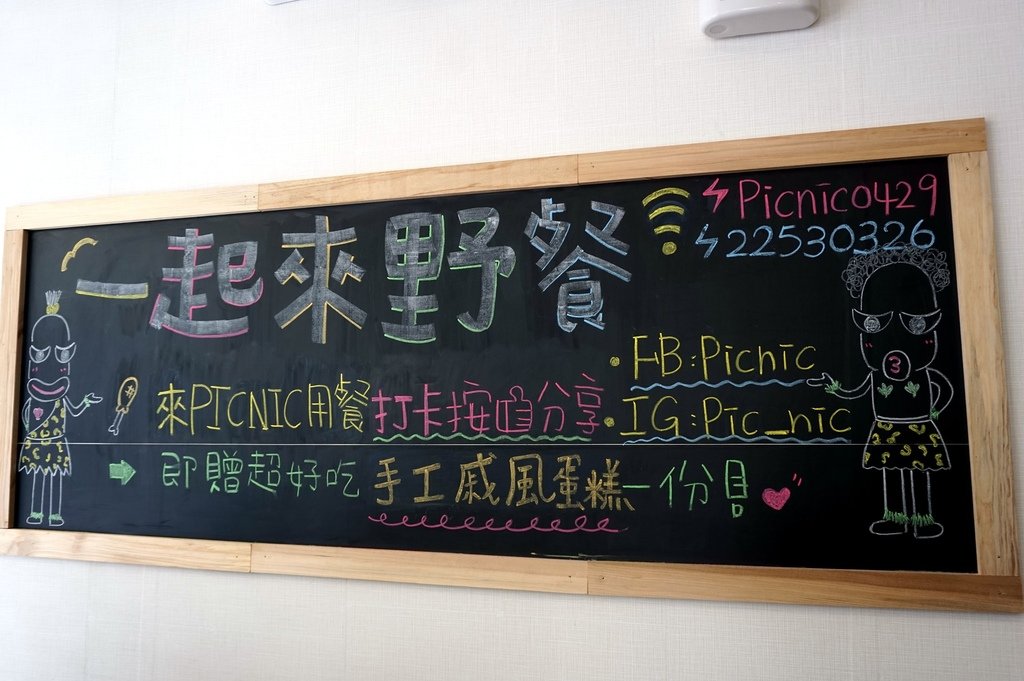 一起來野餐
Picnic0429
22530326
FB:Picnic
IG:Pic_nic
來PICNIC用餐打卡按讚分享
即贈超好吃手工戚風蛋糕一份